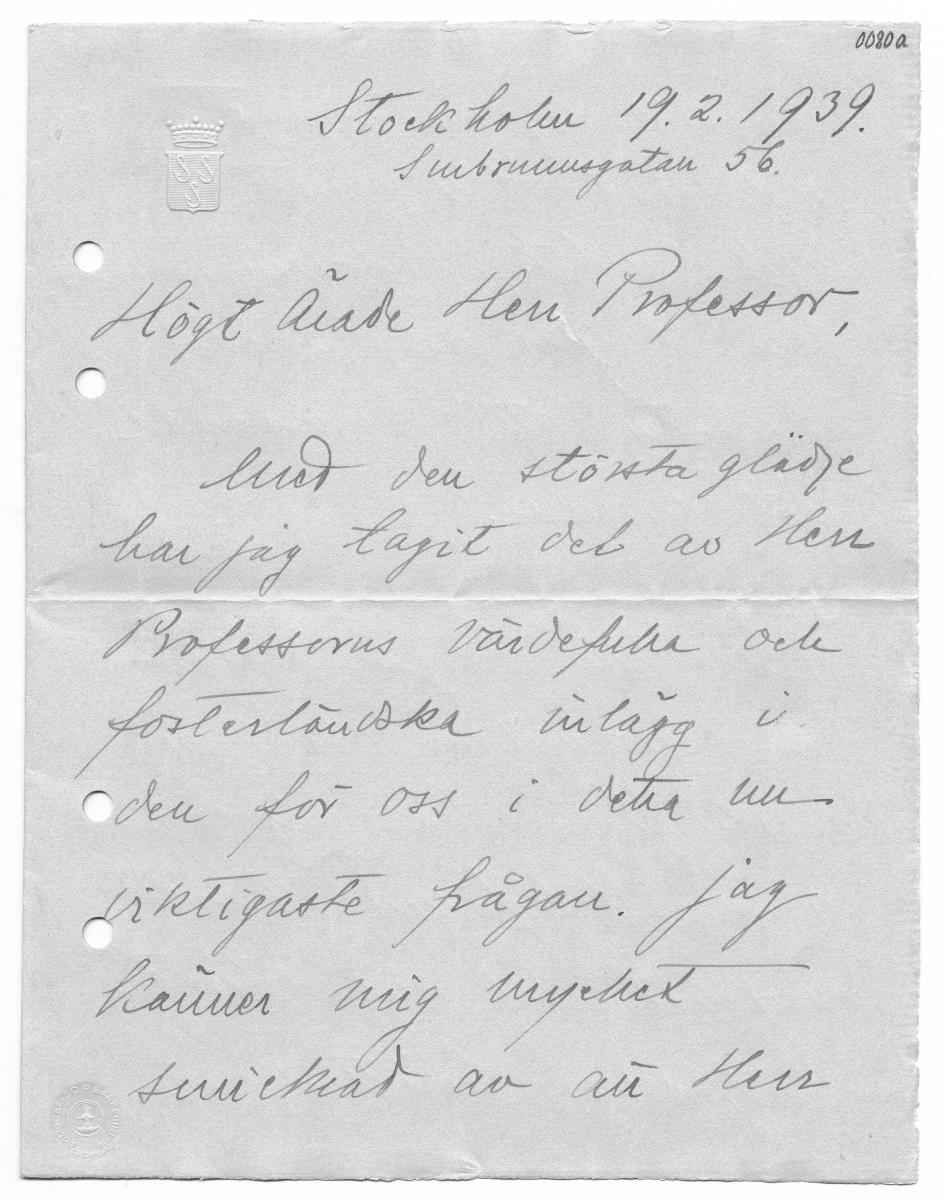 0080a
Stockholm 19.2.1939.
Surbrunnsgatan 56.
Högt Ärade Herr Professor,
Med den största glädje
har jag tagit del av Herr
Professorns värdefulla och
fosterländska inlägg i
den för oss i detta nu
viktigaste frågan. Jag
känner mig mycket
smickrad av att Herr